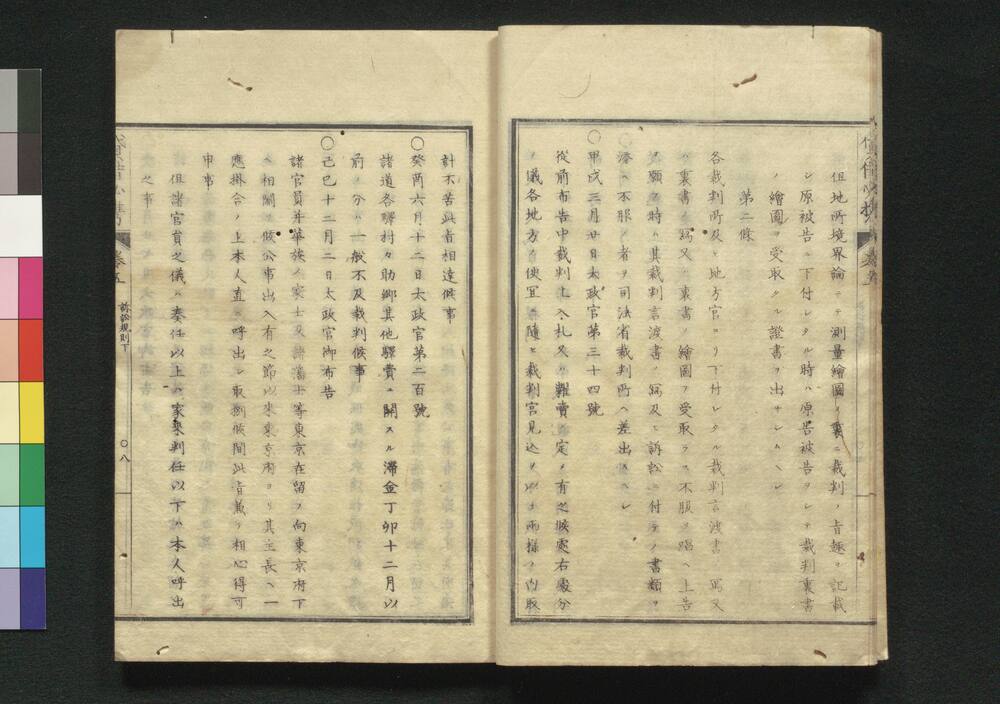 但地所境界論ニテ測量繪圖ノ裏ニ裁判ノ旨趣ヲ記載
シ原被告ニ下付シタル時ハ原告被告ヲシテ裁判裏書
ノ繪圖ヲ受取タル證書ヲ出サシムヘシ
第二條
各裁判所及ヒ地方官ヨリ下付シタル裁判言渡書ノ寫又
ハ裏書ノ寫又ハ裏書ノ繪圖ヲ受取ラス不服ヲ唱ヘ上告
ヲ願フ時ハ其裁判言渡書ノ寫及ヒ訴訟ニ付テノ書類ヲ
添ヘ不服ノ者ヲ司法省裁判所ヘ差出スヘシ
〇甲戌三月廿日太政官第三十四號
從前布告中裁判上入札又ハ糶賣ノ定メ有之候處右處分
ノ儀各地方ノ便宜ニ隨ヒ裁判官見込ヲ以テ兩樣ノ内取
計不苦此旨相達候事
〇癸酉六月十二日太政官第二百號
諸道各驛村々助郷其他驛費ニ關スル滯金丁卯十二月以
前ノ分ハ一般不及裁判候事
〇己巳十二月二日太政官御布告
諸官員并華族ノ家士及諸藩士等東京在留ノ向東京府下
ヘ相關リ候公事出入有之節以來東京府ヨリ其主長ヘ一
應掛合ノ上本人直ニ呼出シ取捌候間此旨兼テ相心得可
申事
但諸官員之儀ハ奏任以上ハ家來判任以下ハ本人呼出
卷五
訴訟規則下
〇八